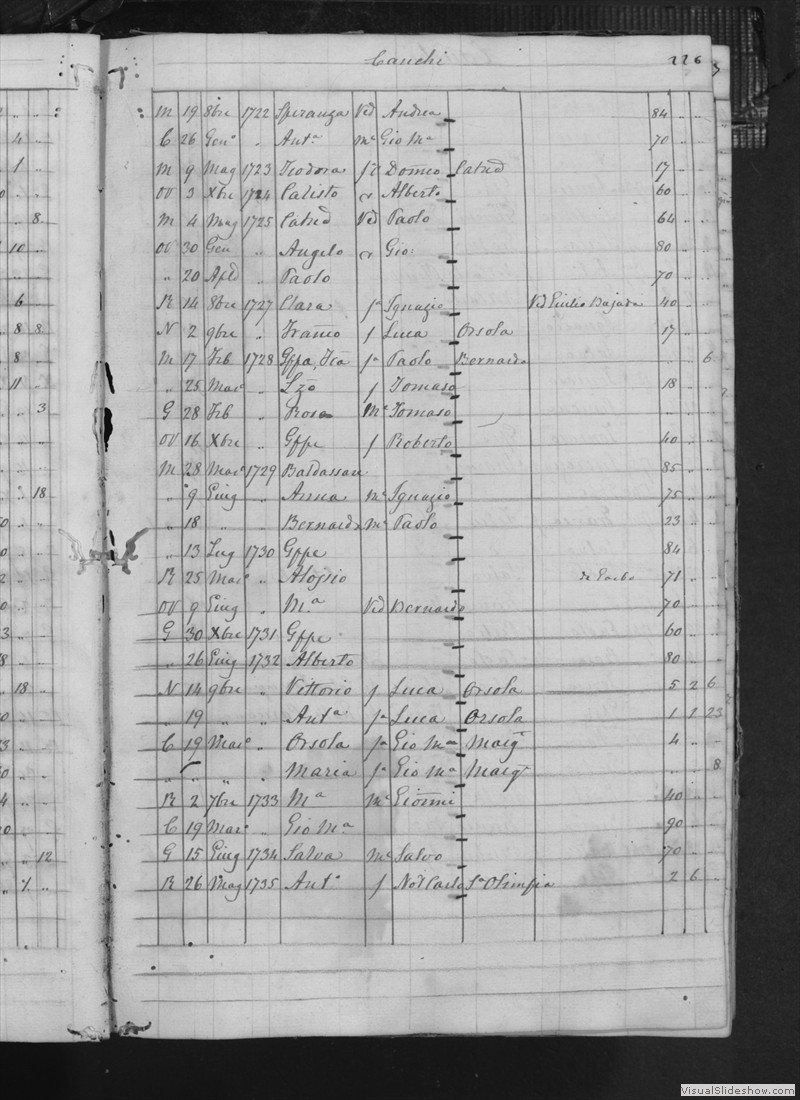 Cauchi 226
M 19 8bre 1722 Speranza Vd Andrea 84 " "
C 26 Genº " Antª mᵉ Gio Mª 70 " "
M 9 Mag 1723 Teodora fª Domco Catrd 17 " "
OV 3 Xbre 1724 Calisto Alberto 60 " "
M 4 Mag 1725 Catrd Vd Paolo 64 " "
OV 30 Gen " Angelo Gio: 80 " "
" 20 Apl " Paolo 70 " "
R 14 8bre 1727 Clara fª Ignazio Vd Giulio Bajada 40 " "
N 2 9bre " Franco f Luca Orsola 17 " "
M 17 Feb 1728 Gppa, Fca fª Paolo Bernarda " " 6
" 25 Marº " Lzo f Tomaso 18 " "
G 28 Feb " Rosa Mᵉ Tomaso " "
OV 16 Xbre " Gppe f Roberto 40 " "
M 28 Marº 1729 Baldassare 85 " "
" 9 Giug " Anna mᵉ Ignazio 75 " "
" 18 " " Bernarda mᵉ Paolo 23 " "
" 13 Lug 1730 Gppe 84 " "
R 25 Marº " Aloysio 71 "
OV 9 Giug " Mª Vd Bernardo 70 " "
G 30 Xbre 1731 Gppe 60 " "
" 26 Giug 1732 Alberto 80 " "
N 14 9bre " Vittorio f Luca Orsola 5 2 6
" 19 " " Antª fª Luca Orsola 1 1 23
C 19 Marº " Orsola fª Gio Mª Marg 4 " "
" " " " Maria fª Gio Mª Marg " " 8
R 2 7bre 1733 Mª Mᵉ Gionni 40 " "
C 19 Marº " Gio Mª 90 " "
G 15 Giug 1734 Salva Mᵉ Salvo 70 " "
R 26 Mag 1735 Antº f Not Carlo Sª Olimpia 2 6 "
VisualSlideshow.com